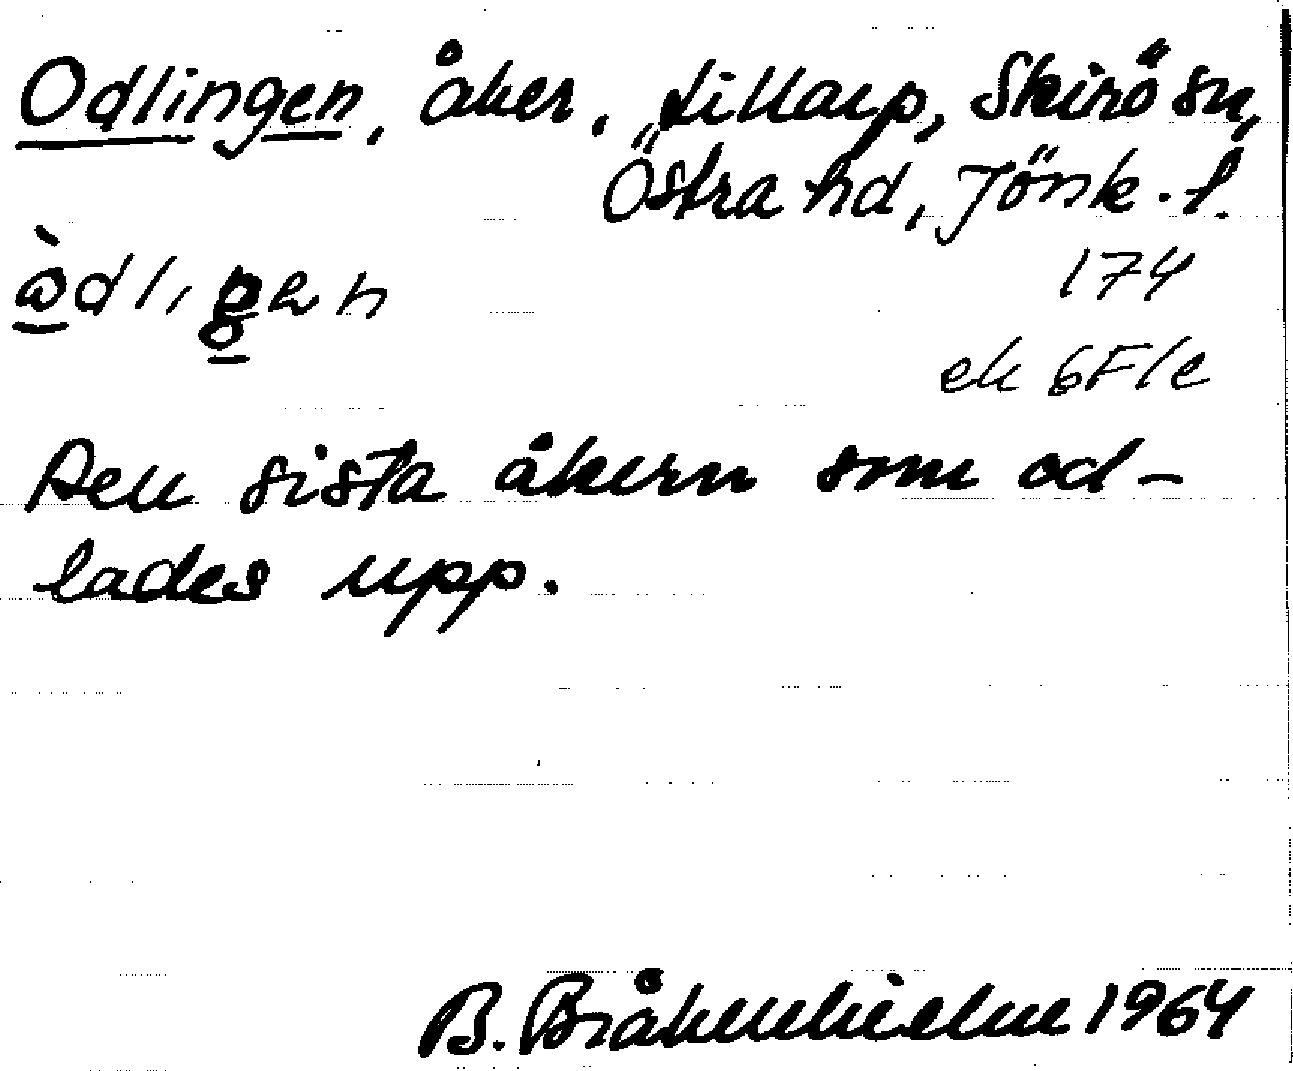 Odlingen, åker, Lillarp, Skirö sn,
Östra hd, Jönk. l.
174
ek 6F1e
Den sista åkern som od-
lades upp.
B. Bråkenhielm 1964